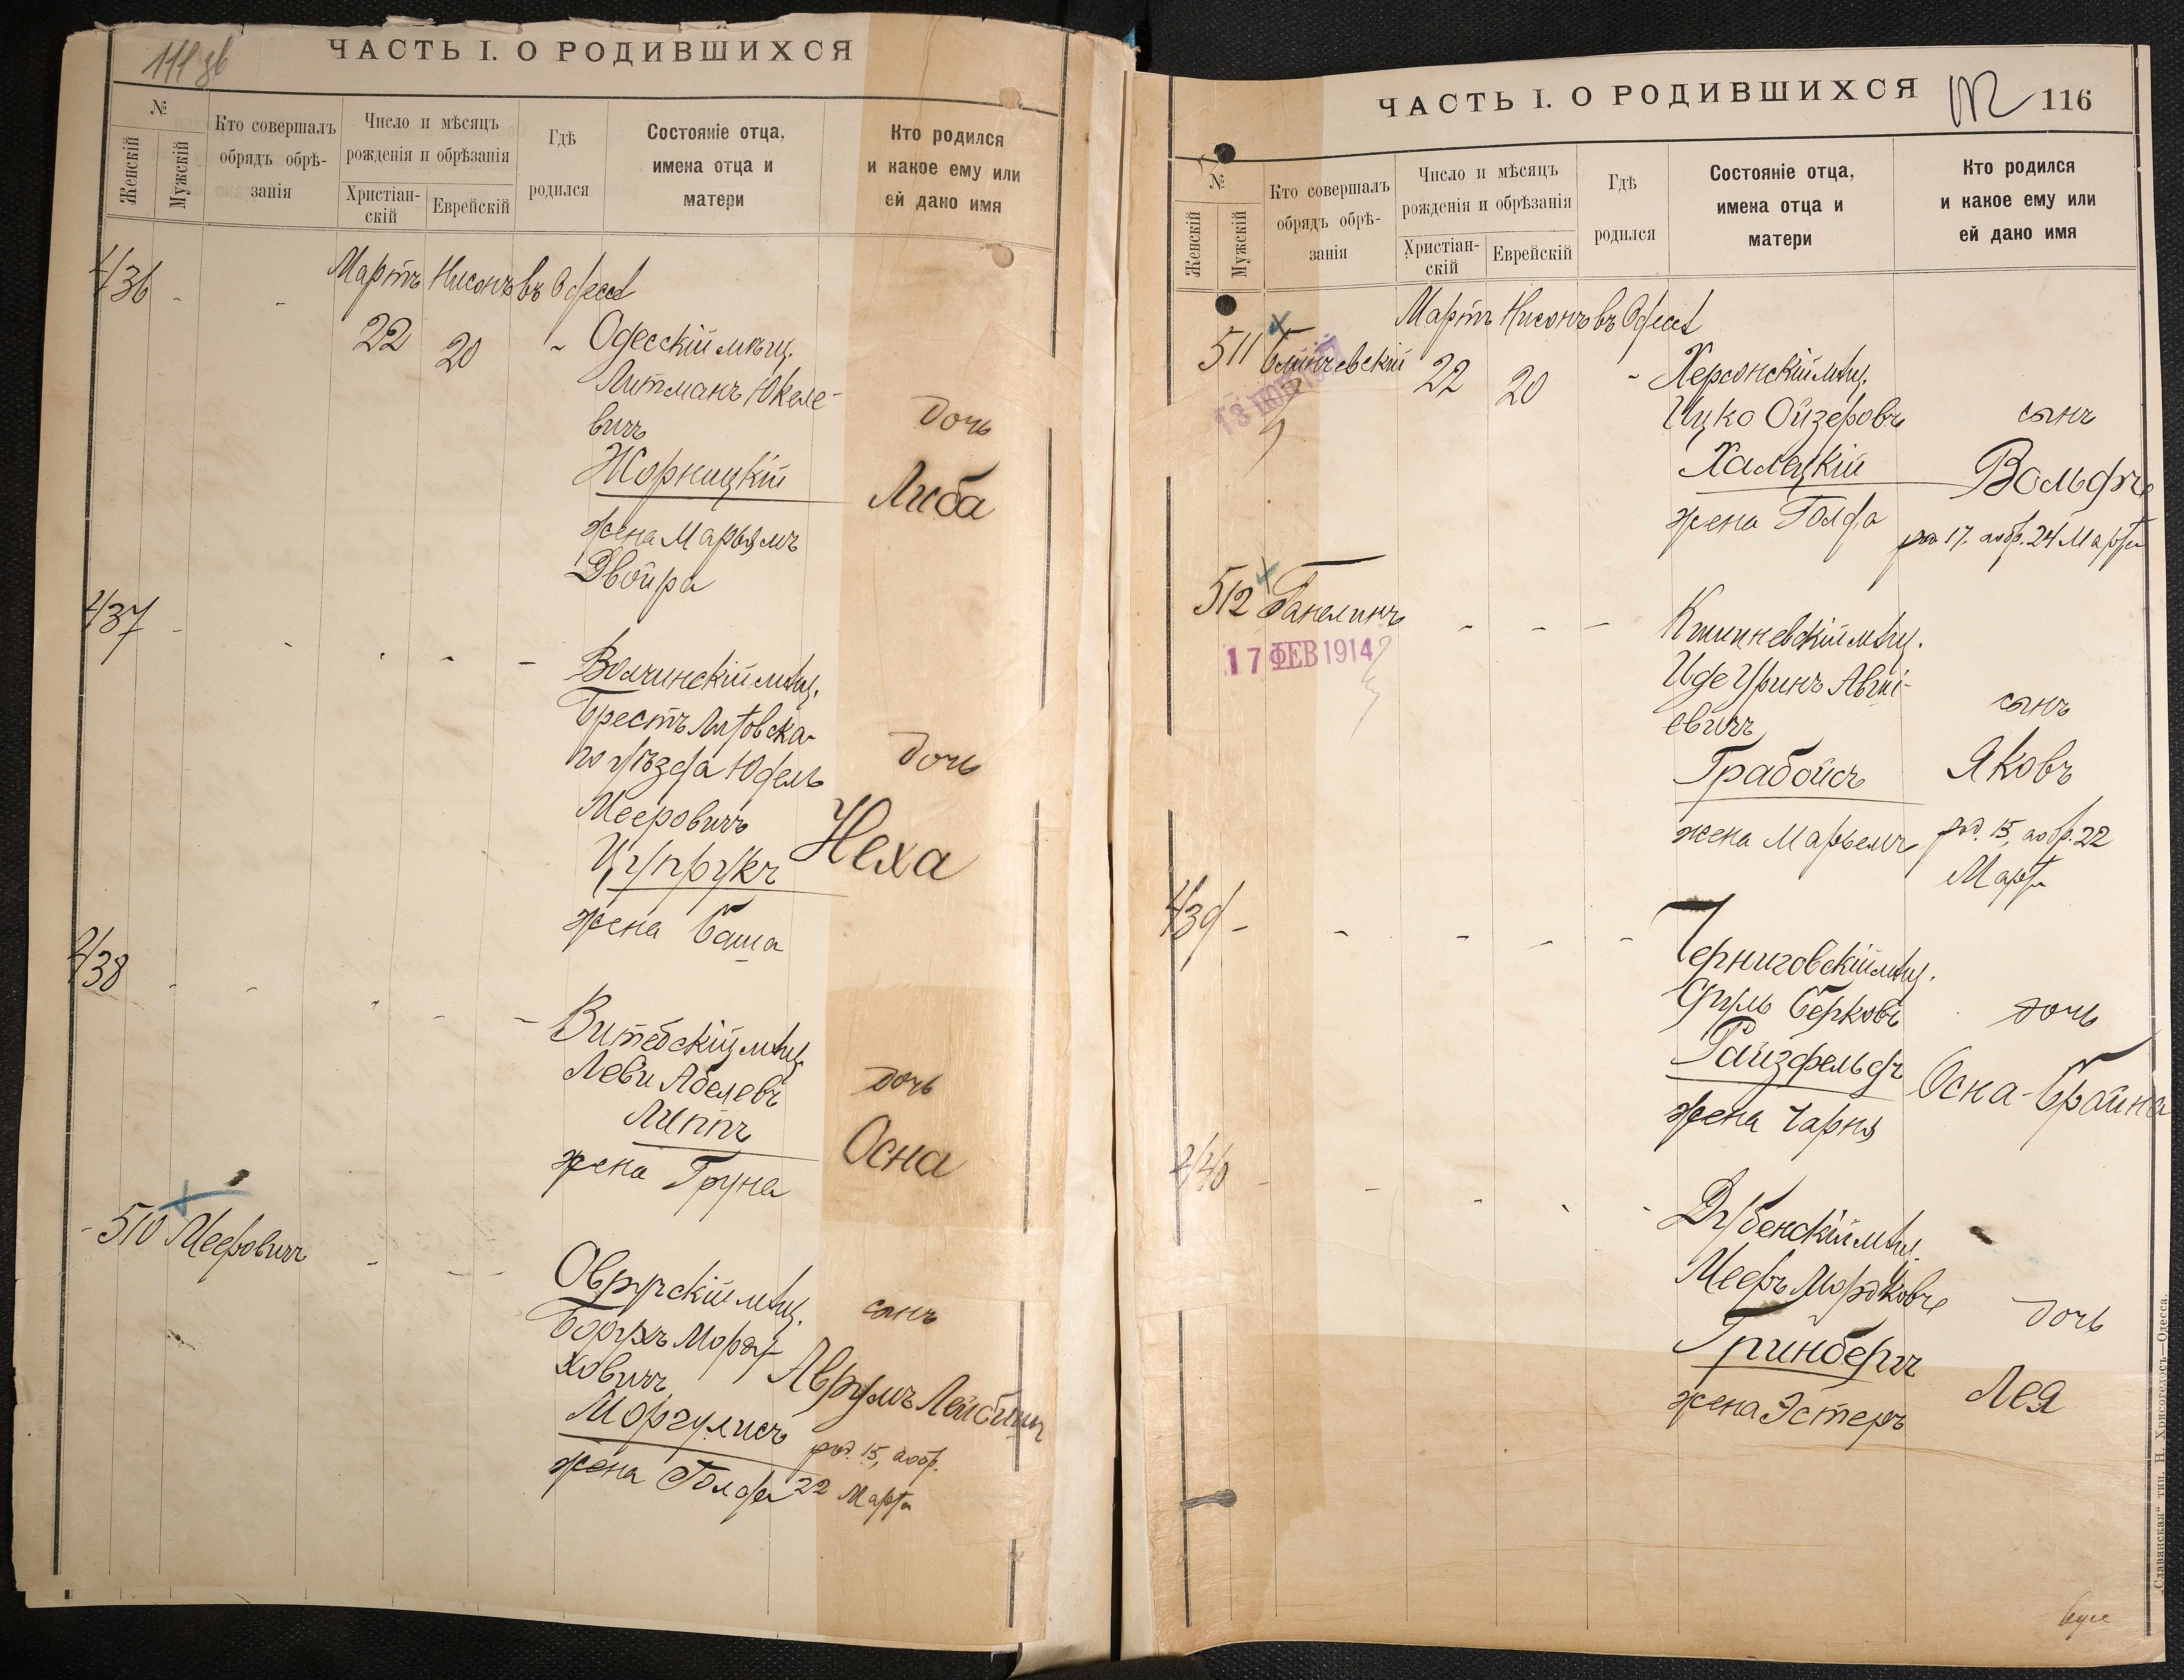 ЧАСТЬ I. О РОДИВШИХСЯ
№
Женскій
Мужскій
Кто совершалъ
обрядъ обрѣ-
занія
Число и мѣсяцъ
рожденія и обрѣзанія
Христіан-
скій
Еврейскій
Гдѣ
родился
Состояніе отца,
имена отца и
матери
Кто родился
и какое ему или
ей дано имя
436 - - Мартъ Нисонъ въ Одессѣ
22 20 - Одесскій мѣщ.
Литманъ Юкеле-
вичъ
Жорницкій
жена Марьямъ
Двойра
дочь
Либа
437 - - - - - Волчинскій мѣщ.
Брестъ Литовска-
го уѣзда Юдель
Мееровичъ
Цупрукъ
жена Баша
дочь
Неха
438 - - - - - Витебскій мѣщ.
Леви Абелевъ
Липпъ
жена Груна
дочь
Осна
- 510 Мееровичъ - - - Овручскій мѣщ.
Борухъ Морду-
ховичъ
Моргулисъ
жена Голда
сынъ
Аврумъ Лейбишъ
род. 15, аобр.
22 Марта
ЧАСТЬ I. О РОДИВШИХСЯ
116
№
Женскій
Мужскій
Кто совершалъ
обрядъ обрѣ-
занія
Число и мѣсяцъ
рожденія и обрѣзанія
Христіан-
скій
Еврейскій
Гдѣ
родился
Состояніе отца,
имена отца и
матери
Кто родился
и какое ему или
ей дано имя
Мартъ Нисонъ въ Одессѣ
511 22 20 - Херсонскій мѣщ.
Ицко Ойзеровъ
Халецкій
жена Голда
сынъ
Вольфъ
род 17, аобр. 24 Марта
512 Ганелинъ - - - Кишиневскій мѣщ.
17 ФЕВ 1914
евичъ
Грабойсъ
жена Марьемъ
сынъ
Яковъ
род. 15, аобр. 22
Марта
439 - - - - - Черниговскій мѣщ.
Сруль Берковъ
Райзфельдъ
жена Чарня
дочь
Осна-Брайна
440 - - - - - Дубенскій мѣщ.
Мееръ Мордковъ
Гринбергъ
жена Эстеръ
дочь
Лея
„Славянская" тип. Н. Хрисогелосъ—Одесса.